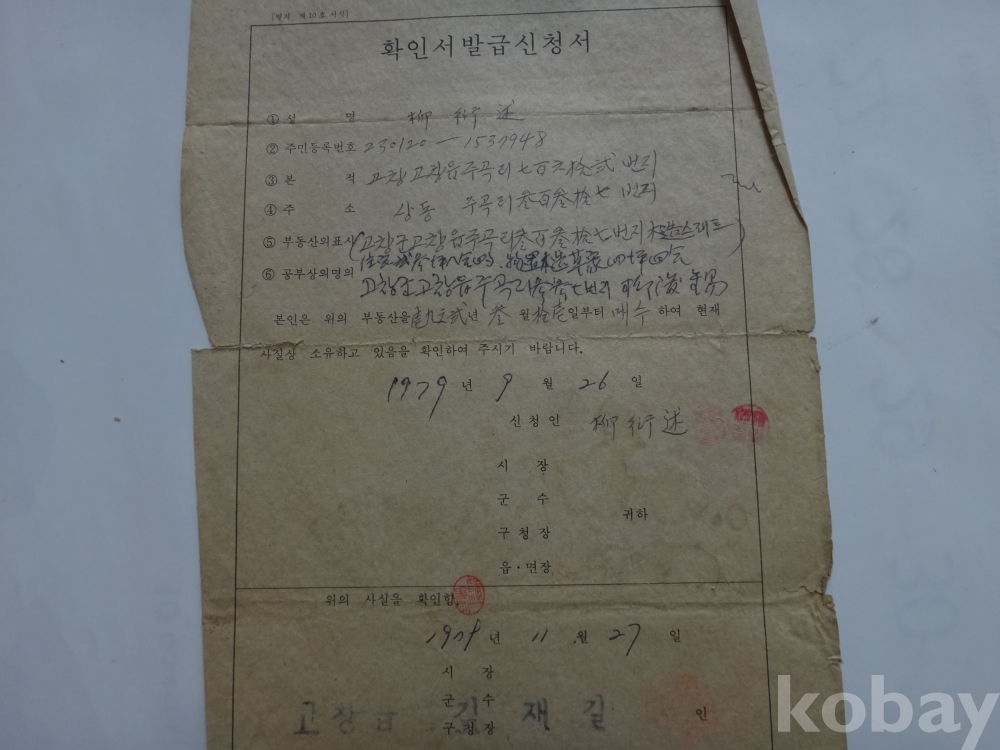 [별지 제10호 서식]
확인서발급신청서
① 성 명 柳 衍 述
② 주민등록번호 230120-1537948
③ 본 적 고창 고창읍 주곡리 七百六拾弐 번지
④ 주 소 상동 주곡리 叁百叁拾七 번지
⑤ 부동산의표시 고창군 고창읍 주곡리 叁百叁拾七번지 木造스레트
⑥ 공부상의명의
고창군 고창읍 주곡리 번지
본인은 위의 부동산을 년 叁 월 拾壱일부터 매수 하여 현재
사실상 소유하고 있음을 확인하여 주시기 바랍니다.
1979 년 9 월 26 일
신청인 柳 衍 述
시 장
군 수
구청장
읍·면장
귀하
위의 사실을 확인함.
1979 년 11 월 27 일
시 장
군 수
구청장
고창읍 김재길 인
kobay